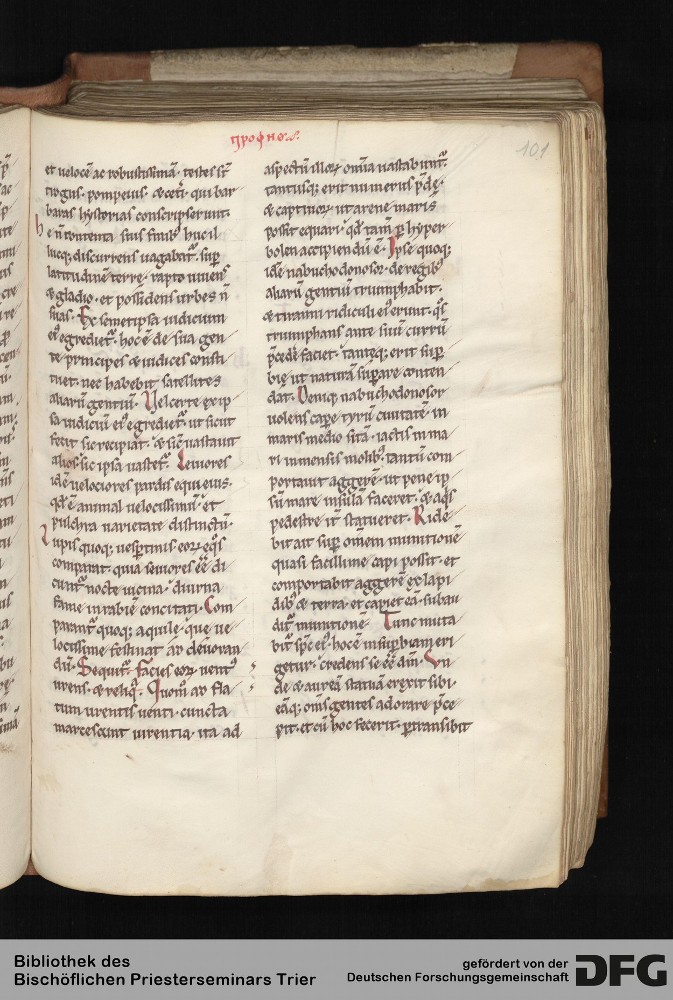 προφηθ.ς.
101
et uelocē ac robustissimā. testes st̄
trogus. pompeius. & cet̄i. qui bar
baras hystorias conscripserunt.
he n̄ contenta suis finib; huc il
lucq; discurrens uagabat᷑. sup̄
latitudinē terrę. rapto uiuens
& gladio. et possidens urbes n̄
suas. Ex semetipsa iudicium
ei᷒ egrediet᷑. hoc ē de sua gen
te principes & iudices consti
tuet. nec habebit satellites
aliarū gentiū. Uel certe ex ip
sa iudiciū ei᷒ egrediet᷑. ut sicut
fecit sic recipiat. & sic̄ uastauit
alios. sic ipsa uastet᷑. Leuiores
idē uelociores pardis equi eius.
qd̄ ē animal uelocissimū. et
pulchra uarietate distinctū.
Lupis quoq; uesp̄tinis eoꝝ eq̄s
comparat. quia seuiores ēē di
cunt᷑ nocte uicina. diurna
fame in rabiē concitati. Com
parant᷑ quoq; aquile. que ue
locissime festinat ad deuoran
dū. Sequit᷑. Facies eoꝝ uent᷒
urens. & reliq̄. Quom̄ ad fla
tum urentis uenti. cuncta
marcescunt uirentia. ita ad
aspectū illoꝝ om̄ia uastabunt᷑.
tantusq; erit numerus p̄dę.
& captiuoꝝ ut arene maris
possit equari. qd̄ tam̄ ꝑ hyper
bolen accipiendū ē. Ipse quoq;
idē nabuchodonosor. de regib᷒
aliarū gentiū triumphabit.
& tiranni ridiculi ei᷒ erunt. q̄s
triumphans ante suū currū
p̄cedē faciet. tanteq; erit sup̄
bię ut naturā sup̄are conten
dat. Deniq; nabuchodonosor
uolens cap̄e tyrū ciuitatē in
maris medio sitā. iactis in ma
ri inmensis molib᷒. tantū com
portauit aggerē. ut pene ip
sū mare insulā faceret. & aq̄s
pedestre it̄ statueret. Ride
bit ait sup̄ om̄em munitionē
quasi facillime capi possit. et
comportabit aggerē ex lapi
dib᷒ & terra. et capiet eā. subau
dit᷑ munitionē. Tunc muta
bit᷑ sp̄c ei᷒. hoc ē in sup̄biam eri
getur. credens se ēē dm̄. Un
de & aureā statuā erexit sibi.
eāq; om̄s gentes adorare p̄ce
pit. et cū hoc fecerit. ꝑtransibit
Bibliothek des
Bischöflichen Priesterseminars Trier
gefördert von der
Deutschen Forschungsgemeinschaft
DFG